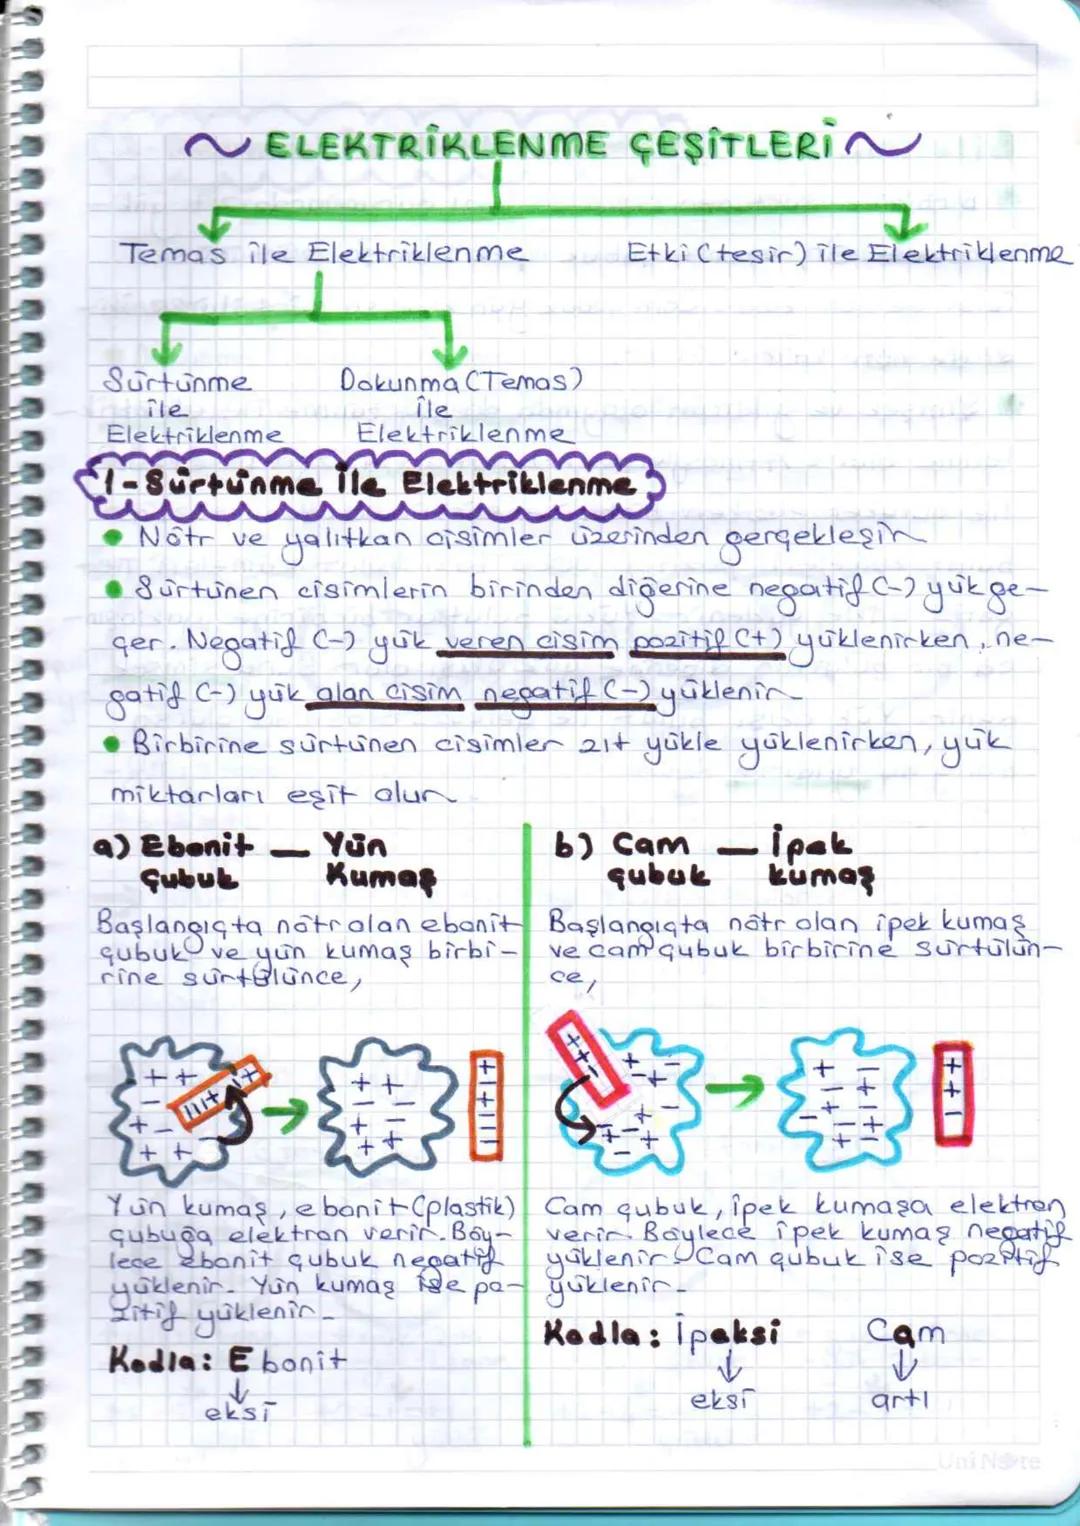 ~ ELEKTRİKLENME ÇEŞİTLERİ ~
Temas ile Elektriklenme
Etki (tesir) ile Elektriklenme
Sürtünme
ile
Elektriklenme
Dokunma (Temas)
ile
Elektriklenme
1- Sürtünme İle Elektriklenme
• Nötr ve yalıtkan cisimler üzerinden gerçekleşir.
• Sürtünen cisimlerin birinden diğerine negatif (-) yük ge-
çer. Negatif (-) yük veren cisim pozitif (+) yüklenirken, ne-
gatif (-) yük alan cisim negatif (-) yüklenir.
• Birbirine sürtünen cisimler zıt yükle yüklenirken, yük
miktarları eşit olur.
a) Ebonit — Yün
Çubuk Kumaş
Başlangıçta nötr olan ebonit
çubuk ve yün kumaş birbi-
rine sürtülünce,
Yün kumaş, ebonit (plastik)
çubuğa elektron verir. Böy-
lece ebonit çubuk negatif
yüklenir. Yün kumaş ise po-
zitif yüklenir.
Kodla: Ebonit
eksi
b) Cam — İpek
çubuk kumaş
Başlangıçta nötr olan ipek kumaş
ve cam çubuk birbirine sürtülün-
ce,
Cam çubuk, ipek kumaşa elektron
verir. Böylece ipek kumaş negatif
yüklenir. Cam çubuk ise pozitif
yüklenir.
Kodla: İpeksi Cam
eksi artı
Uni Note